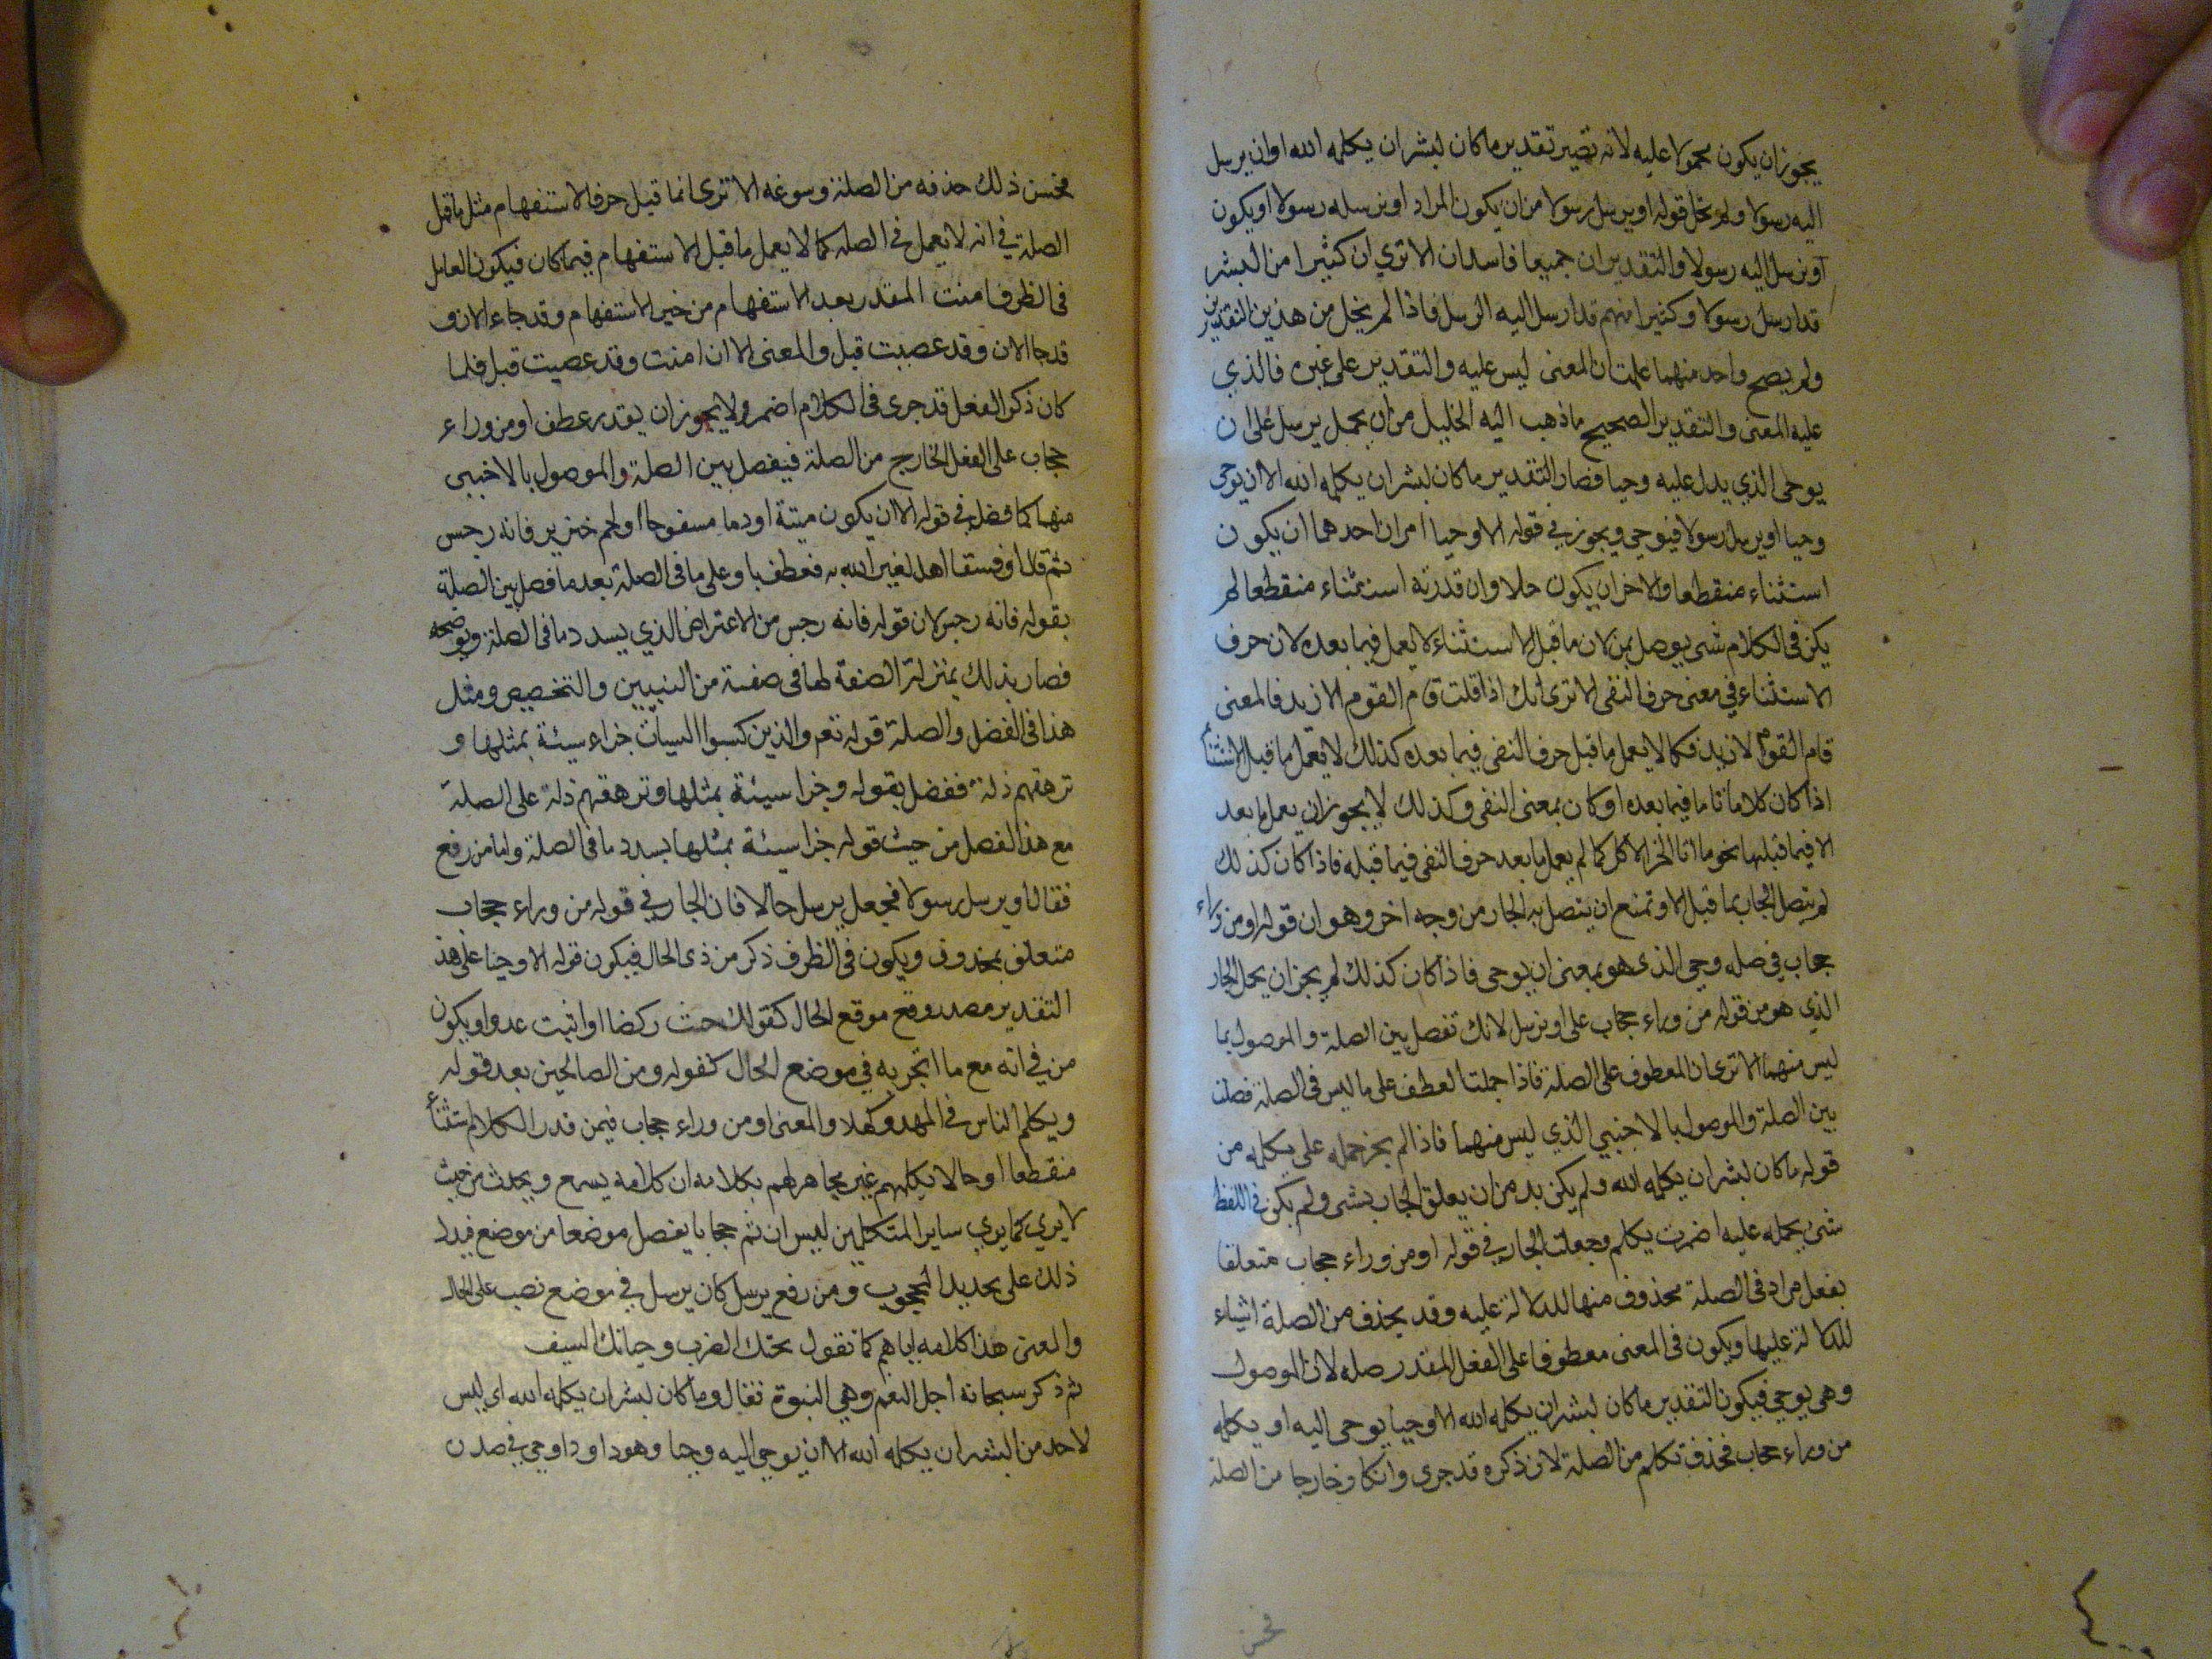 يجوز ان يكون محمولا عليه لانه تصير تقدير ما كان لبشر ان يكلمه الله او ان يرسل
اليه رسولا ولم يخل قوله او يرسل رسولا من ان يكون المراد او يرسله رسولا او يكون
او يرسل اليه رسولا والتقديران جميعا فاسدان الا تري ان كثيرا من البشر
قد ارسل رسولا وكثيرا منهم قد ارسل اليه الرسل فاذا لم يخل من هذين التقديرين
ولم يصح واحد منهما علمت ان المعنى ليس عليه والتقدير على غيره فالذي
عليه المعنى والتقدير الصحيح ما ذهب اليه الخليل من ان يحمل يرسل على ان
يوحى الذي يدل عليه وحيا فصار التقدير ما كان لبشر ان يكلمه الله الا ان يوحى
وحيا او يرسل رسولا فيوحى ويجوز في قوله الا وحيا امران احدهما ان يكون
استثناء منقطعا والاخر ان يكون حالا وان قدرته استثناء منقطعا لم
يكن في الكلام شى يوصل بمن لان ما قبل الاستثناء لا يعمل فيما بعده لان حرف
الاستثناء في معنى حرف النفى الا ترى انك اذا قلت قام القوم الا زيد فالمعنى
قام القوم لا زيد فكما لا يعمل ما قبل حرف النفى فيما بعده كذلك لا يعمل ما قبل الاستثناء
اذا كان كلاما تاما فيما بعده او كان بمعنى النفى وكذلك لا يجوز ان يعمل ما بعد
الا فيما قبلها نحو ما انا الخبز الا اكل كما لم يعمل ما بعد حرف النفى فيما قبله فاذا كان كذلك
لم يتصل الجار بما قبل الا وتمنع ان يتصل به الجار من وجه اخر وهو ان قوله او من وراء
حجاب في صله وحى الذى هو بمعنى ان يوحى فاذا كان كذلك لم يجز ان يحمل الجار
الذي هو من قوله من وراء حجاب على او يرسل لانك تفصل بين الصلة والموصول بما
ليس منهما الا ترى ان المعطوف على الصلة فاذا حملت العطف على ما ليس في الصلة فصلت
بين الصلة والموصول بالاجنبي الذي ليس منهما فاذا لم يجز حمله على يكلمه من
قوله ما كان لبشر ان يكلمه الله ولم يكن بد من ان يعلق الجار بشى ولم يكن في اللفظ
شئ يحمله عليه اضمرت يكلم وجعلت الجار في قوله او من وراء حجاب متعلقا
بفعل مراد فى الصلة محذوف منها للدلالة عليه وقد يحذف من الصلة اشياء
للدلالة عليها ويكون فى المعنى معطوفا على الفعل المقدر صله لان الموصول
وهى يوحي فيكون التقدير ما كان لبشر ان يكلمه الله الا وحيا يوحى اليه او يكلمه
من وراء حجاب فحذف تكلم من الصلة لان ذكره قد جرى وان كا وخارجا من الصلة
فحسن
فحسن ذلك حذفه من الصلة وسوغه الا ترى انما قبل حرف الاستفهام مثل ما قبل
الصلة في انه لا يعمل فى الصله كما لا يعمل ما قبل الاستفهام فيما كان فيكون العامل
فى الظرف امنت المقدر بعد الاستفهام من خبر الاستفهام وقد جاء الان و
قد جا الان وقد عصيت قبل والمعنى الان امنت وقد عصيت قبل فلما
كان ذكر الفعل قد جرى فى الكلام اضمر ولا يجوز ان يقدر عطف او من وراء
حجاب على الفعل الخارج من الصلة فيفصل بين الصلة والموصول بالاجنبى
منهما كما فصل في قوله الا ان يكون ميتة او دما مسفوحا او لحم خنزير فانه رجس
ثم قال او فسقا اهل لغير الله به فعطف باو على ما فى الصلة بعد ما فصل بين الصلة
بقوله فانه رجس لان قوله فانه رجس من الاعتراض الذي يسدد ما فى الصلة ويوضحه
فصار بذلك بمنزلة الصفة لها فى صفة من التبيين والتخصيص ومثل
هذا فى الفضل والصلة قوله تعم والذين كسبوا السيات جزاء سيئة بمثلها و
ترهقهم ذلة ففضل بقوله وجزا سيئة بمثلها وترهقهم ذلة على الصلة
مع هذا الفصل من حيث قوله جزا سيئة بمثلها يسدد ما فى الصلة واما من رفع
فقال او يرسل رسولا فجعل يرسل حالا فان الجار في قوله من وراء حجاب
متعلق بمحذوف ويكون فى الظرف ذكر من ذى الحال فيكون قوله الا وحيا على هذ
التقدير مصدر وقع موقع الحال كقولك جئت ركضا او اتيت عدوا ويكون
من في انه مع ما انجر به في موضع الحال كقوله ومن الصالحين بعد قوله
ويكلم الناس فى المهد وكهلا والمعنى او من وراء حجاب فيمن قدر الكلام استثناء
منقطعا او حالا يكلمهم غير مجاهر لهم بكلامه ان كلامه يسمع ويحدث من حيث
لا يري كما يري ساير المتكلمين ليس ان ثم حجابا يفصل موضعا من موضع فيدل
ذلك على تحديد المحجوب ومن رفع يرسل كان يرسل في موضع نصب على الحال
والمعنى هذا كلامه اياهم كما تقول تحتك الضرب وحياتك السيف
ثم ذكر سبحانه اجل النعم وهي النبوة فقال وما كان لبشر ان يكلمه الله اي ليس
لاحد من البشر ان يكلمه الله الا ان يوحي اليه وحيا وهو داود اوحي في صدن